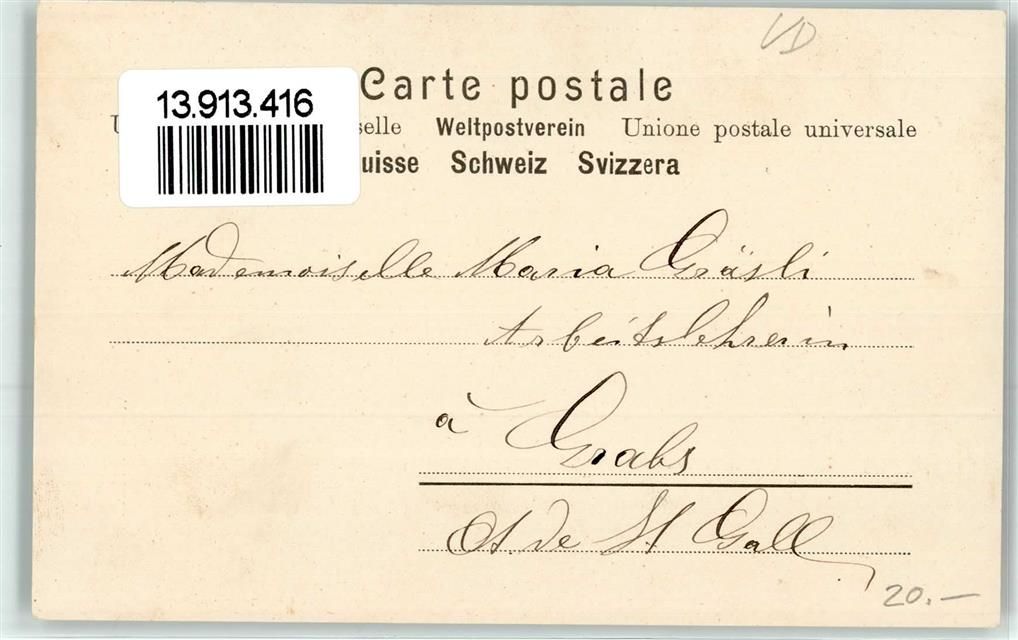 VD
Carte postale
13.913.416
U selle Weltpostverein Unione postale universale
uisse Schweiz Svizzera
Mademoiselle Maria Gräsli
Arbeitslehrerin
à Grabs
Ct. de St Gall
20.—